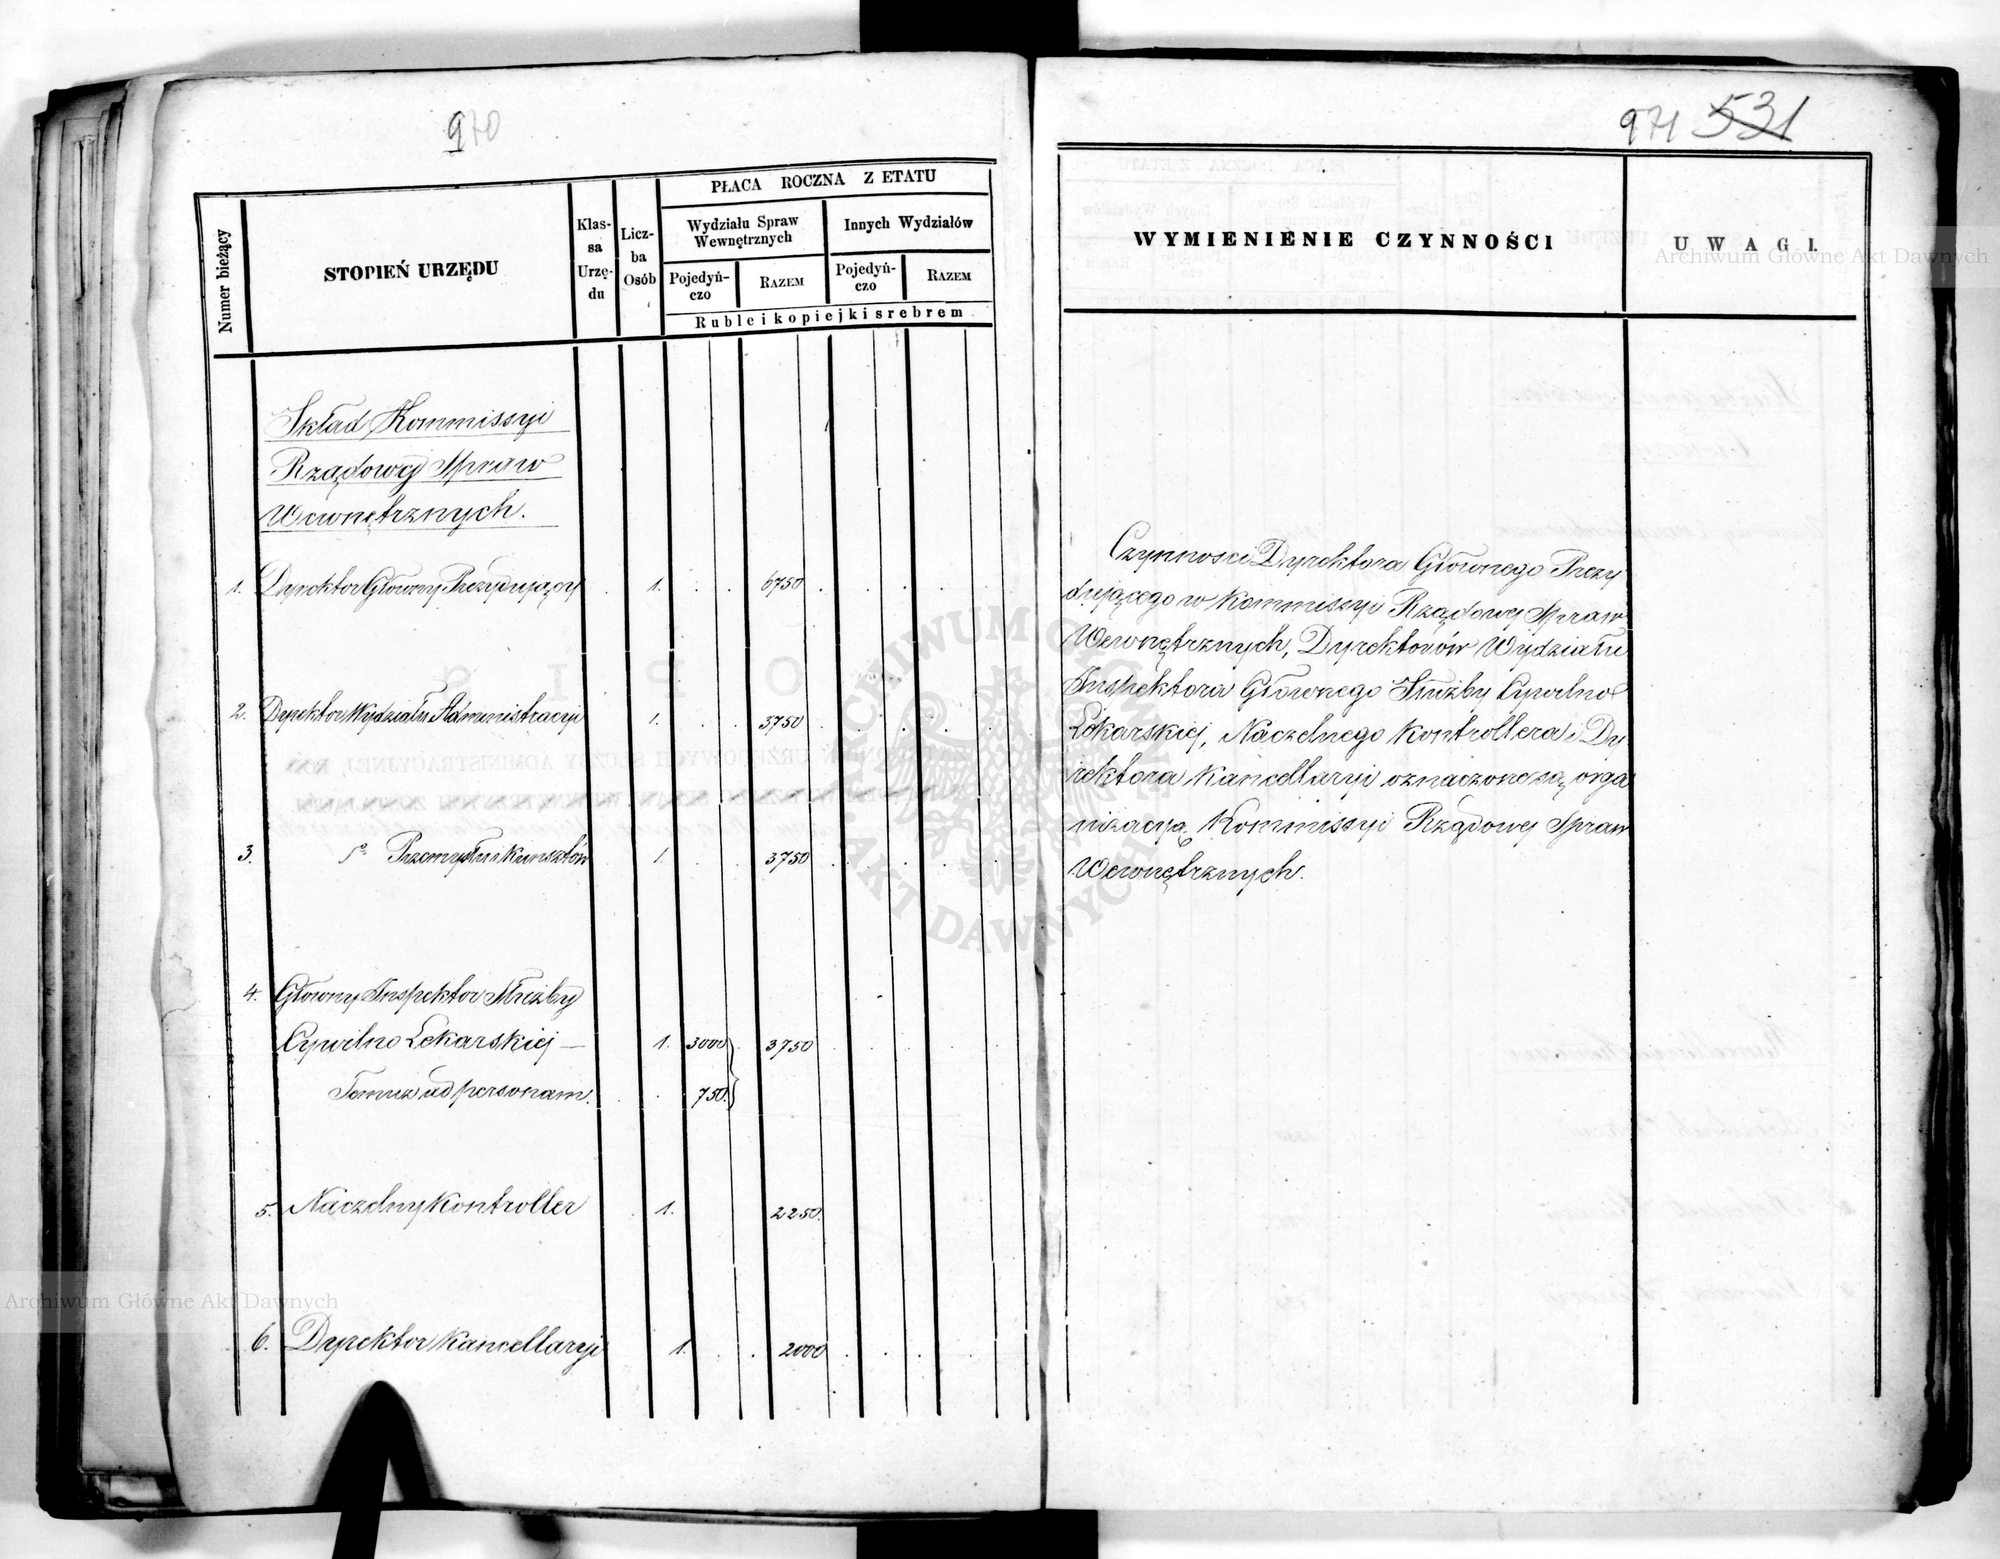 970
Numer bieżący
STOPIEŃ URZĘDU
Klas-
sa
Urzę-
du
Licz-
ba
Osób
PŁACA ROCZNA Z ETATU
Wydziału Spraw
Wewnętrznych
Innych Wydziałów
Pojedyń-
czo
RAZEM
Pojedyń-
czo
RAZEM
Ruble i kopiejki srebrem
Skład Kommissyi
Rządowej Spraw
Wewnętrznych.
1. Dyrektor Główny Prezydujący 1. 6750
2. Dyrektor Wydziału Administracyi 1. 3750
3. Przemysłu i Kunsztów 1. 3750
4. Główny Inspektor Służby
Cywilno Lekarskiej — 1. 3000 3750
Temuż ad personam. 750.
5. Naczelny Kontroller 1. 2250.
6. Dyrektor Kancellaryi 1. 2000
971 531
WYMIENIENIE CZYNNOŚCI
UWAGI.
Czynnosci Dyrektora Głównego Prezy
dującego w Kommissyi Rządowej Spraw
Wewnętrznych, Dyrektorów Wydziału
Inspektora Głównego Służby Cywilno
Lekarskiej, Naczelnego Kontrollera i Dy
rektora Kancellaryi oznaczone są orga
nizacyą Kommissyi Rządowej Spraw
Wewnętrznych.
Archiwum Główne Akt Dawnych
Archiwum Główne Akt Dawnych
ARCHIWUM GŁÓWNE AKT DAWNYCH